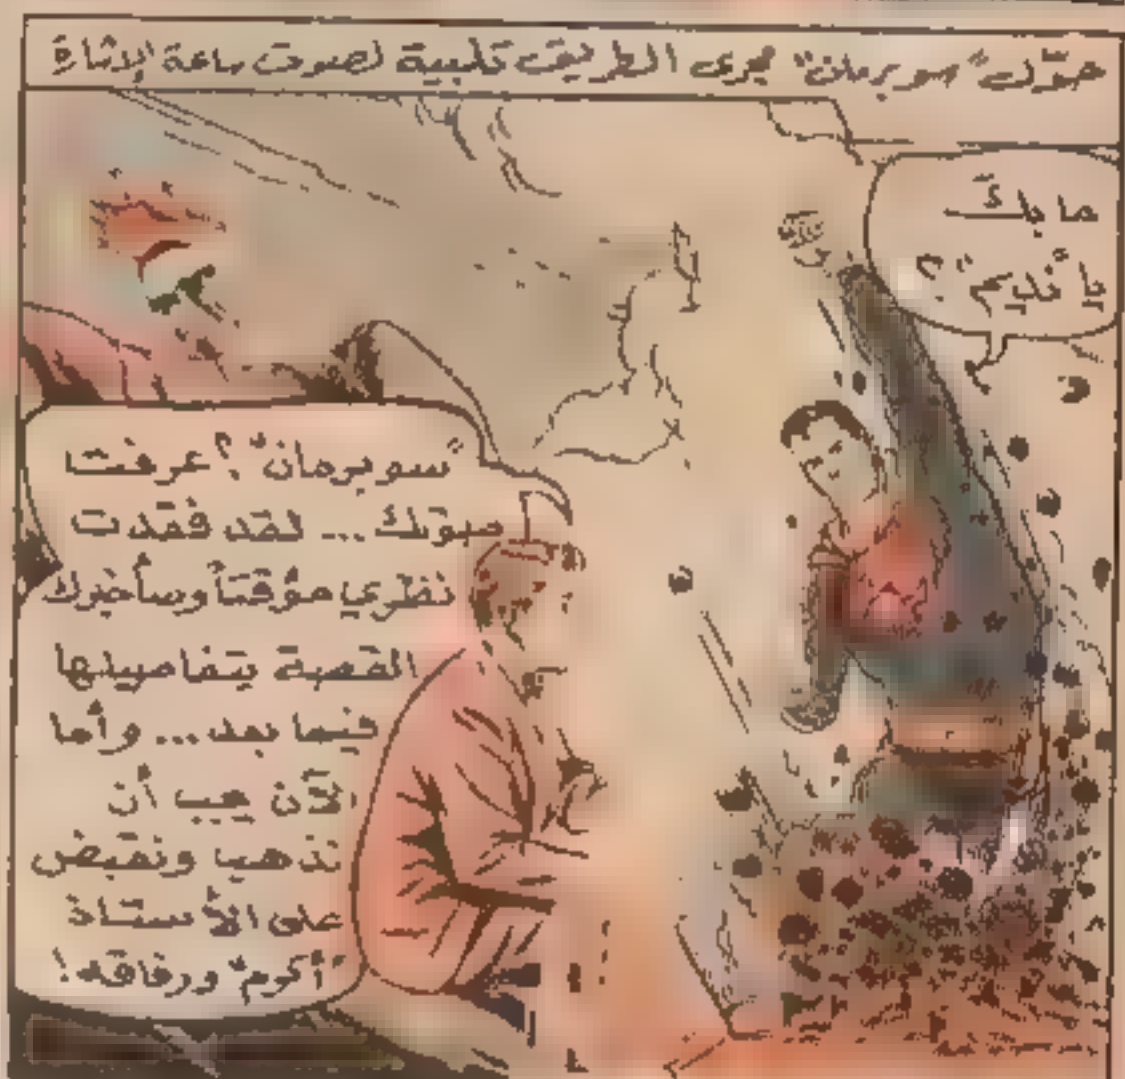 حوّل "سوبرمان" مجرى الطريق تلبية لصوت ساعة الإشارة
ما بكَ
يا "نديم"؟
"سوبرمان"؟ عرفت
صوتك... لقد فقدت
نظري مؤقتاً وسأخبرك
القصة بتفاصيلها
فيما بعد... وأما
الآن يجب أن
نذهب ونقبض
على الأستاذ
"أكرم" ورفاقه!